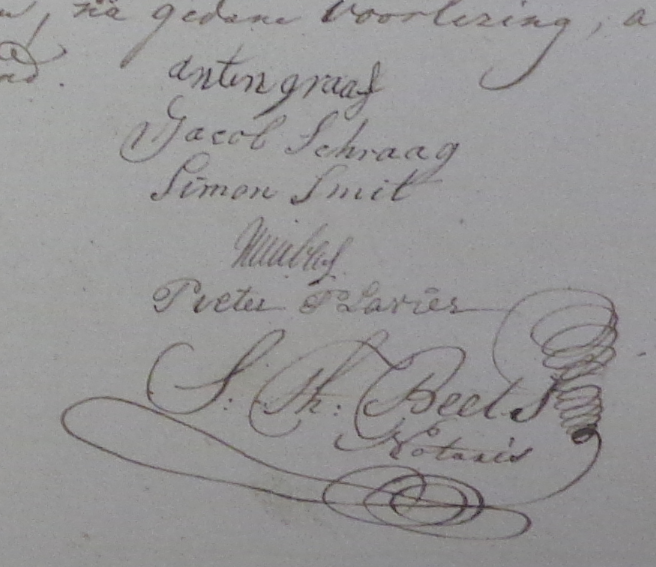 na gedane voorlezing, a
anten graaf
Jacob Schraag
Simon Smit
Pieter Plavier
S: Th: Beets
Notaris